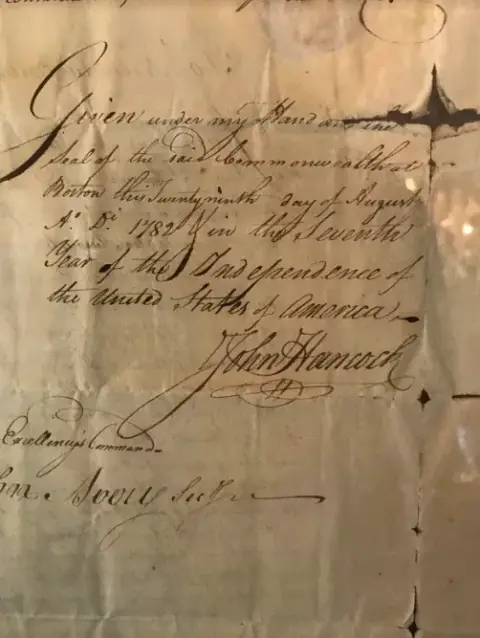 Given under my Hand and the
Seal of the said Commonwealth at
Boston this Twenty ninth day of August
A.o D.i 1782 & in the Seventh
Year of the Independence of
the United States of America
John Hancock
Excellency's Command
Avery Secry